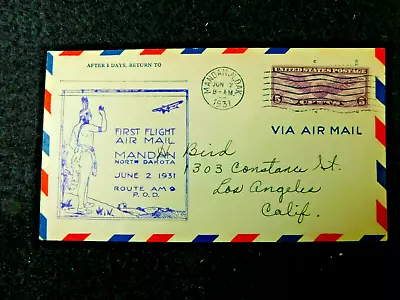 AFTER 5 DAYS, RETURN TO
MANDAN, N. DAK.
JUN 2
8-AM
1931
UNITED STATES POSTAGE
5 CENTS 5
VIA AIR MAIL
FIRST FLIGHT
AIR MAIL
MANDAN
NORTH DAKOTA
JUNE 2 1931
ROUTE AM 9
P.O.D.
H Bird
1303 Constance St.
Los Angeles
Calif.